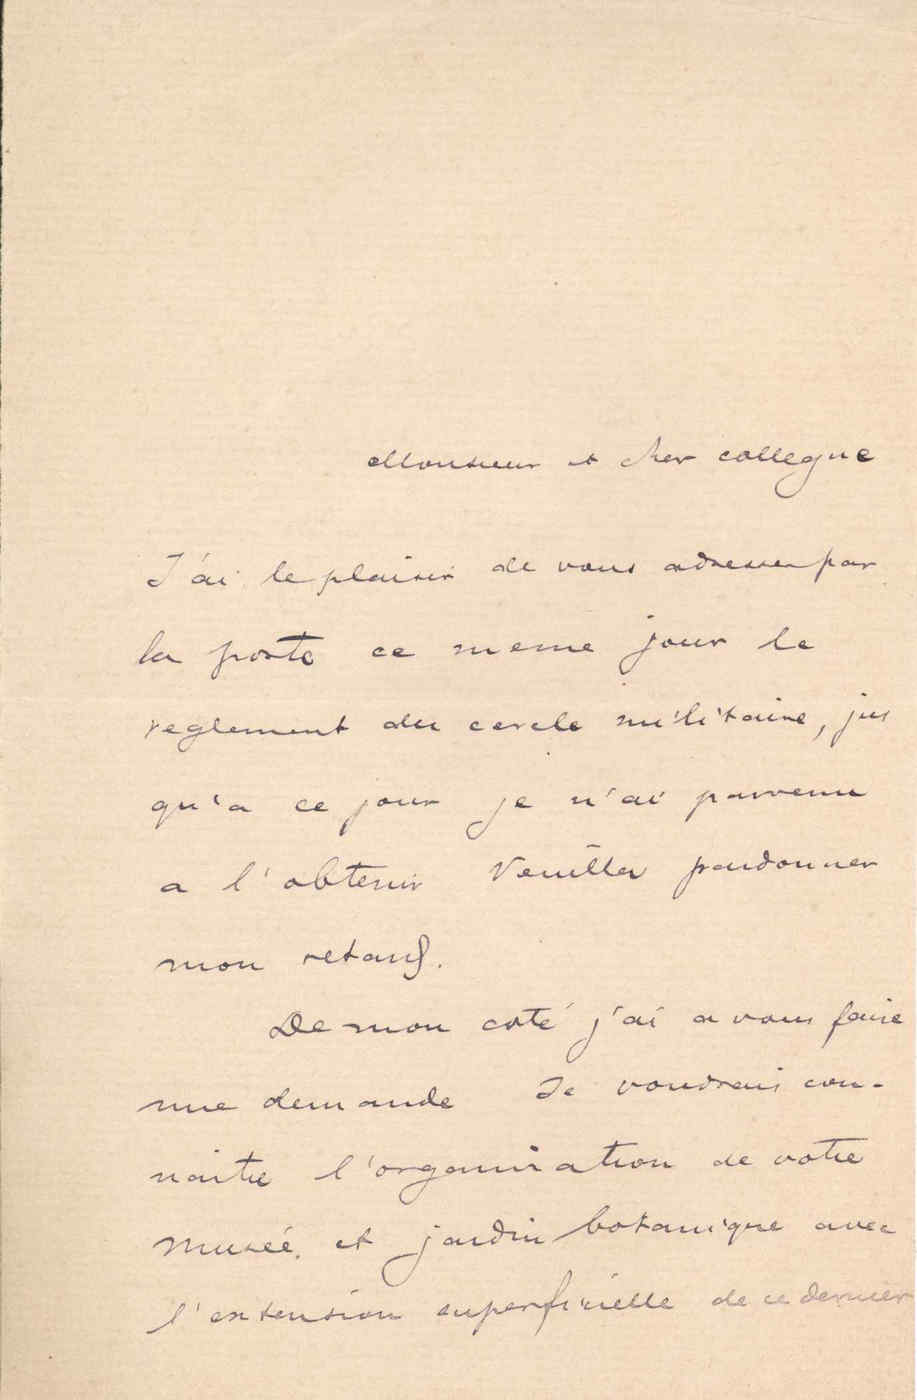 Monsieur et cher collegue
J'ai le plaisir de vous adresser par
la poste ce meme jour le
reglement du cercle militaire, jus
qu'a ce jour je n'ai parvenu
a l'obtenir Veuillez pardonner
mon retard.
De mon coté j'ai a vous faire
une demande Je voudrais con-
naitre l'organisation de votre
museé. et jardin botanique avec
l'extension superficielle de ce dernier